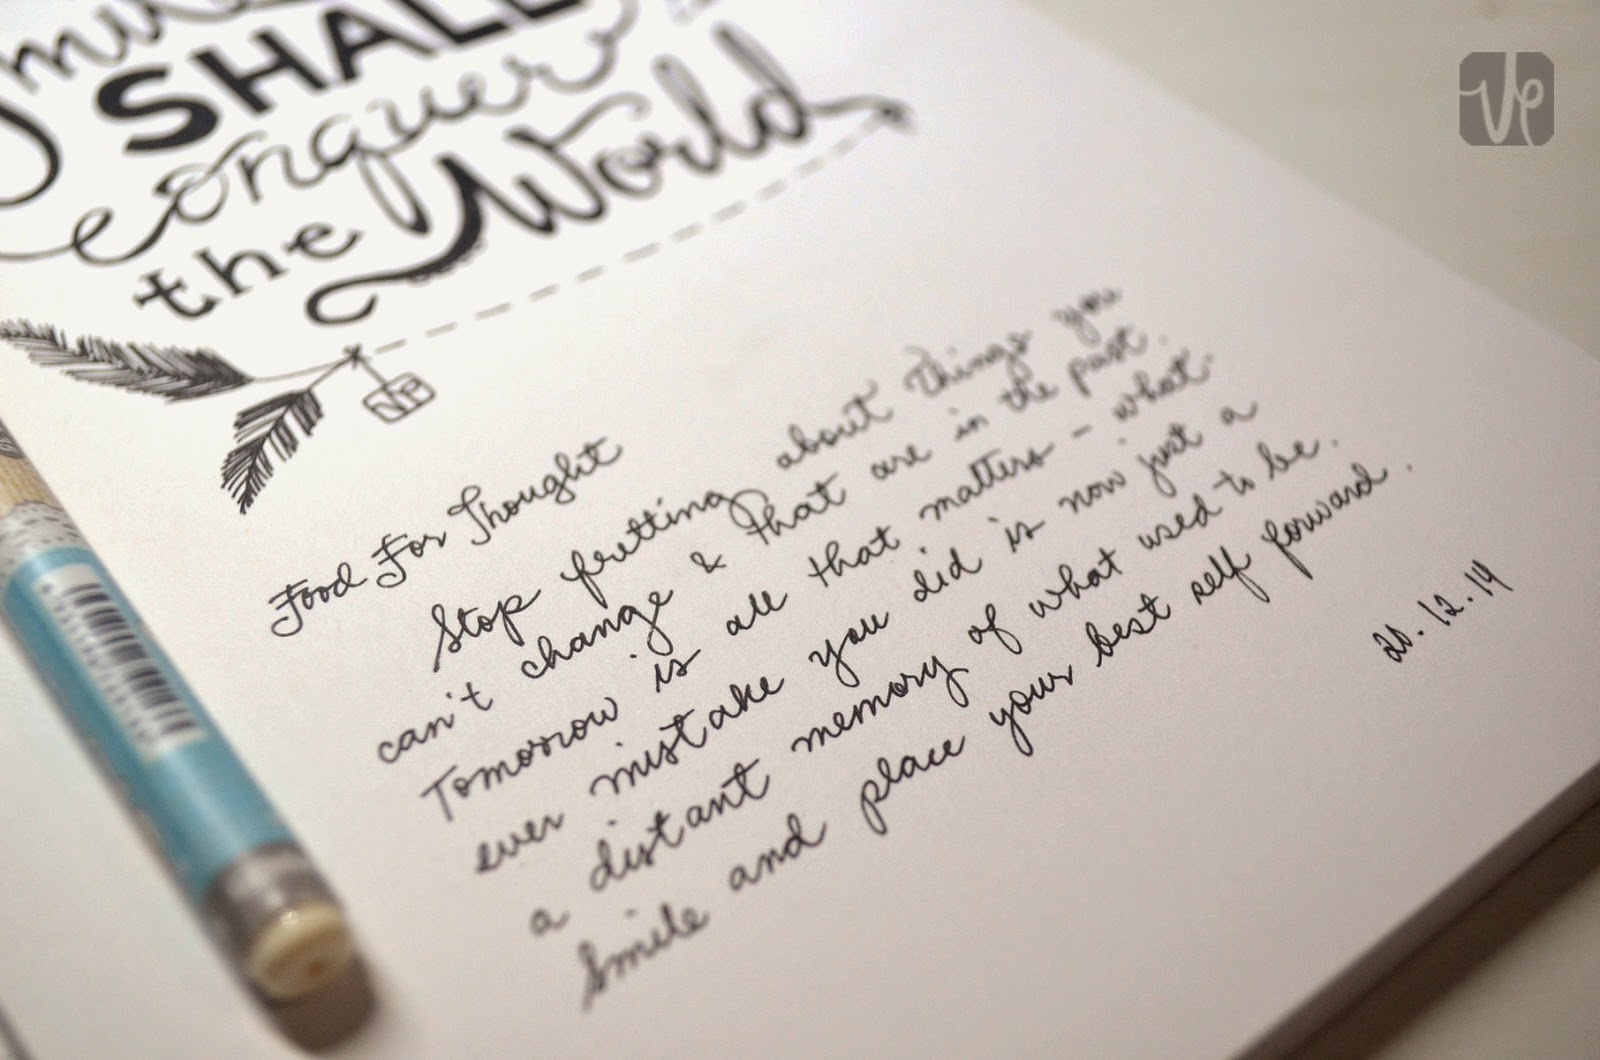 SHALL
conquer
the World
VP
Food For Thought
Stop fretting about things you
can't change & that are in the past.
Tomorrow is all that matters – what-
ever mistake you did is now just a
a distant memory of what used to be.
Smile and place your best self forward.
. 12 . 14